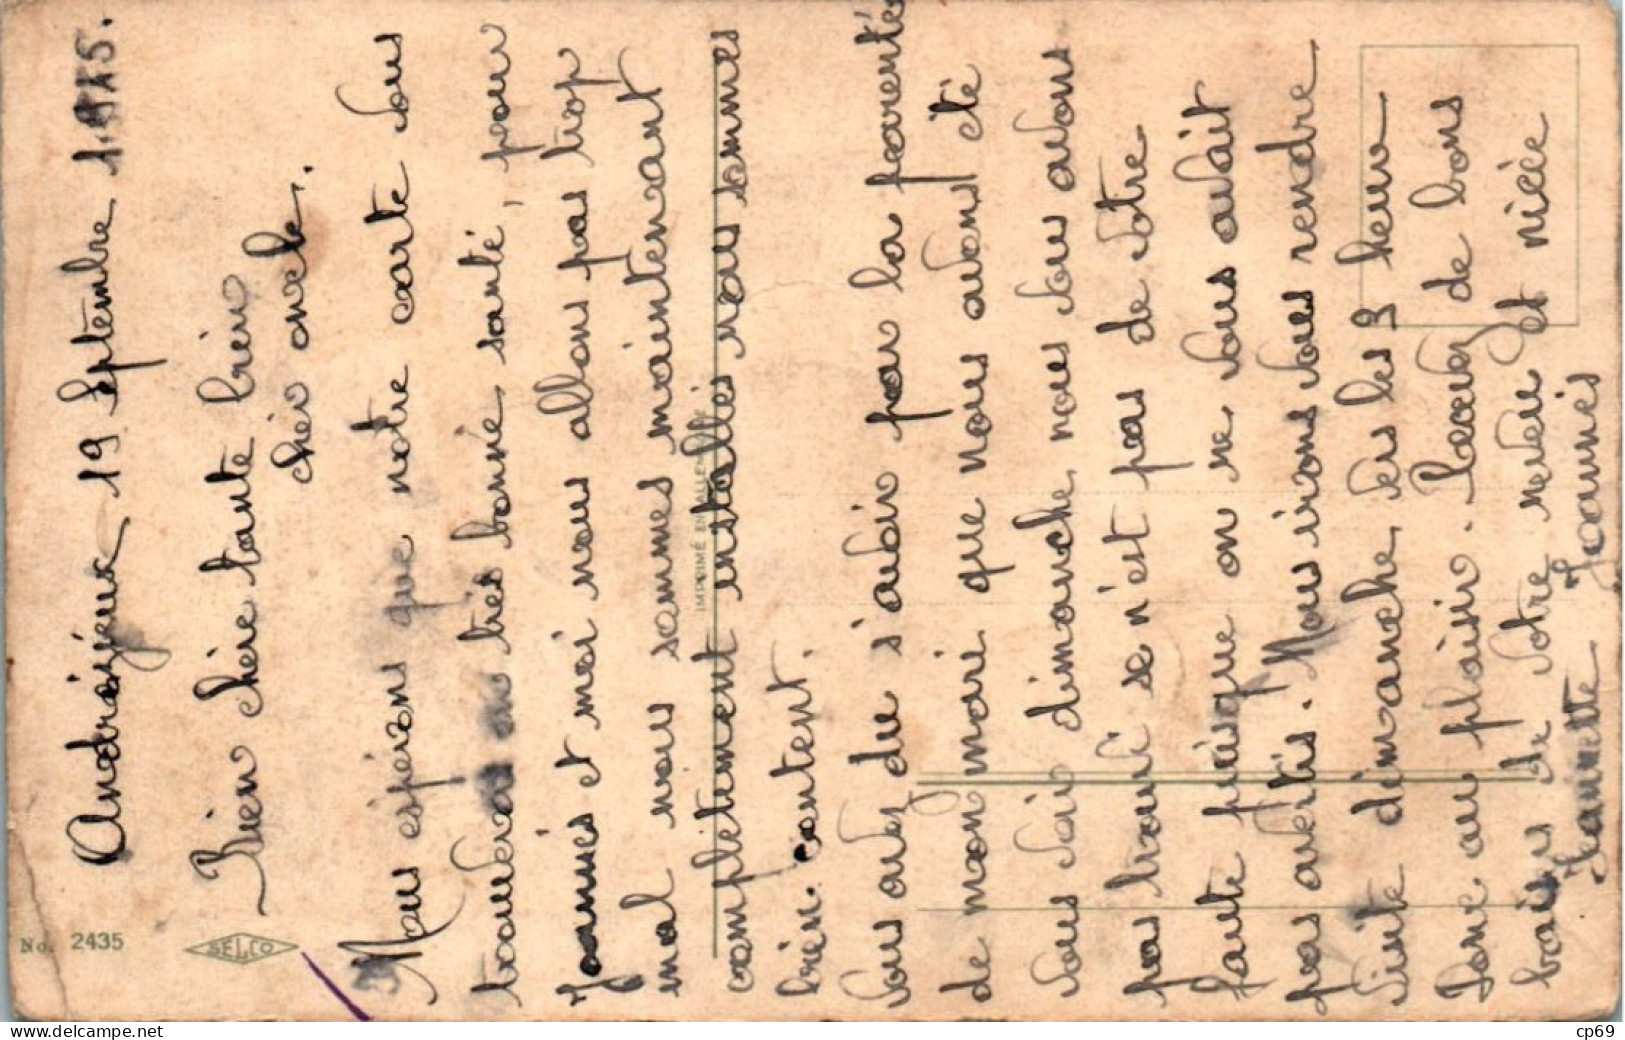 Andrézieux 19 Septembre 1945.
Bien chère tante bien
chèr oncle.
Nous espérons que notre carte vous
trouvera en très bonne santé, pour
Joannès et moi nous allons pas trop
mal nous sommes maintenant
complètement installés nous sommes
bien content.
vous avez du s'avoir par la parenté
de mon mari que nous avons été
vous voir dimanche, nous vous avons
pas trouvé se n'est pas de votre
faute puisque on ne vous avait
pas avertis. Nous irons vous rendre
visite dimanche, vers les 9 heur
Donc au plaisir. Recevez de bons
baisers de votre neveu et nièce
Jeannette Joannès
No. 2435
SELCO
IMPRIMÉ EN ALLEM
delcampe.net
cp69